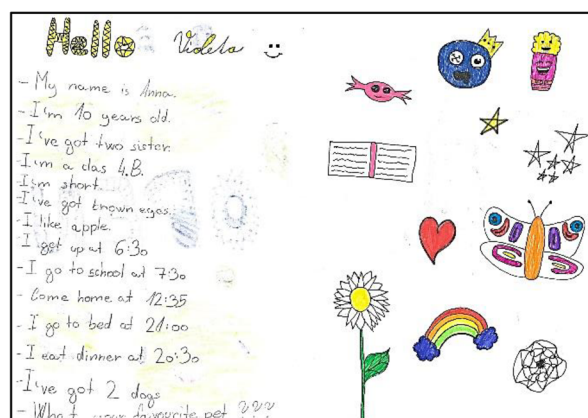 Hello Violeta
- My name is Anna.
- I'm 10 years old.
- I've got two sister.
- I'm a clas 4.B.
I'm short.
I've got brown eyes.
I like apple.
I get up at 6:30
- I go to school at 7:30
- Come home at 12:35
- I go to bed at 21:00
- I eat dinner at 20:30
- I've got 2 dogs
- What your favourite pet ???